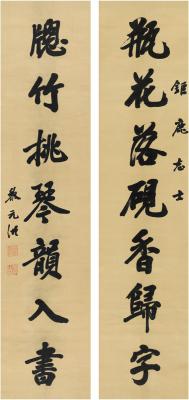 瓶花落硯香歸字
鉅鹿志士
牕竹挑琴韻入書
黎元洪